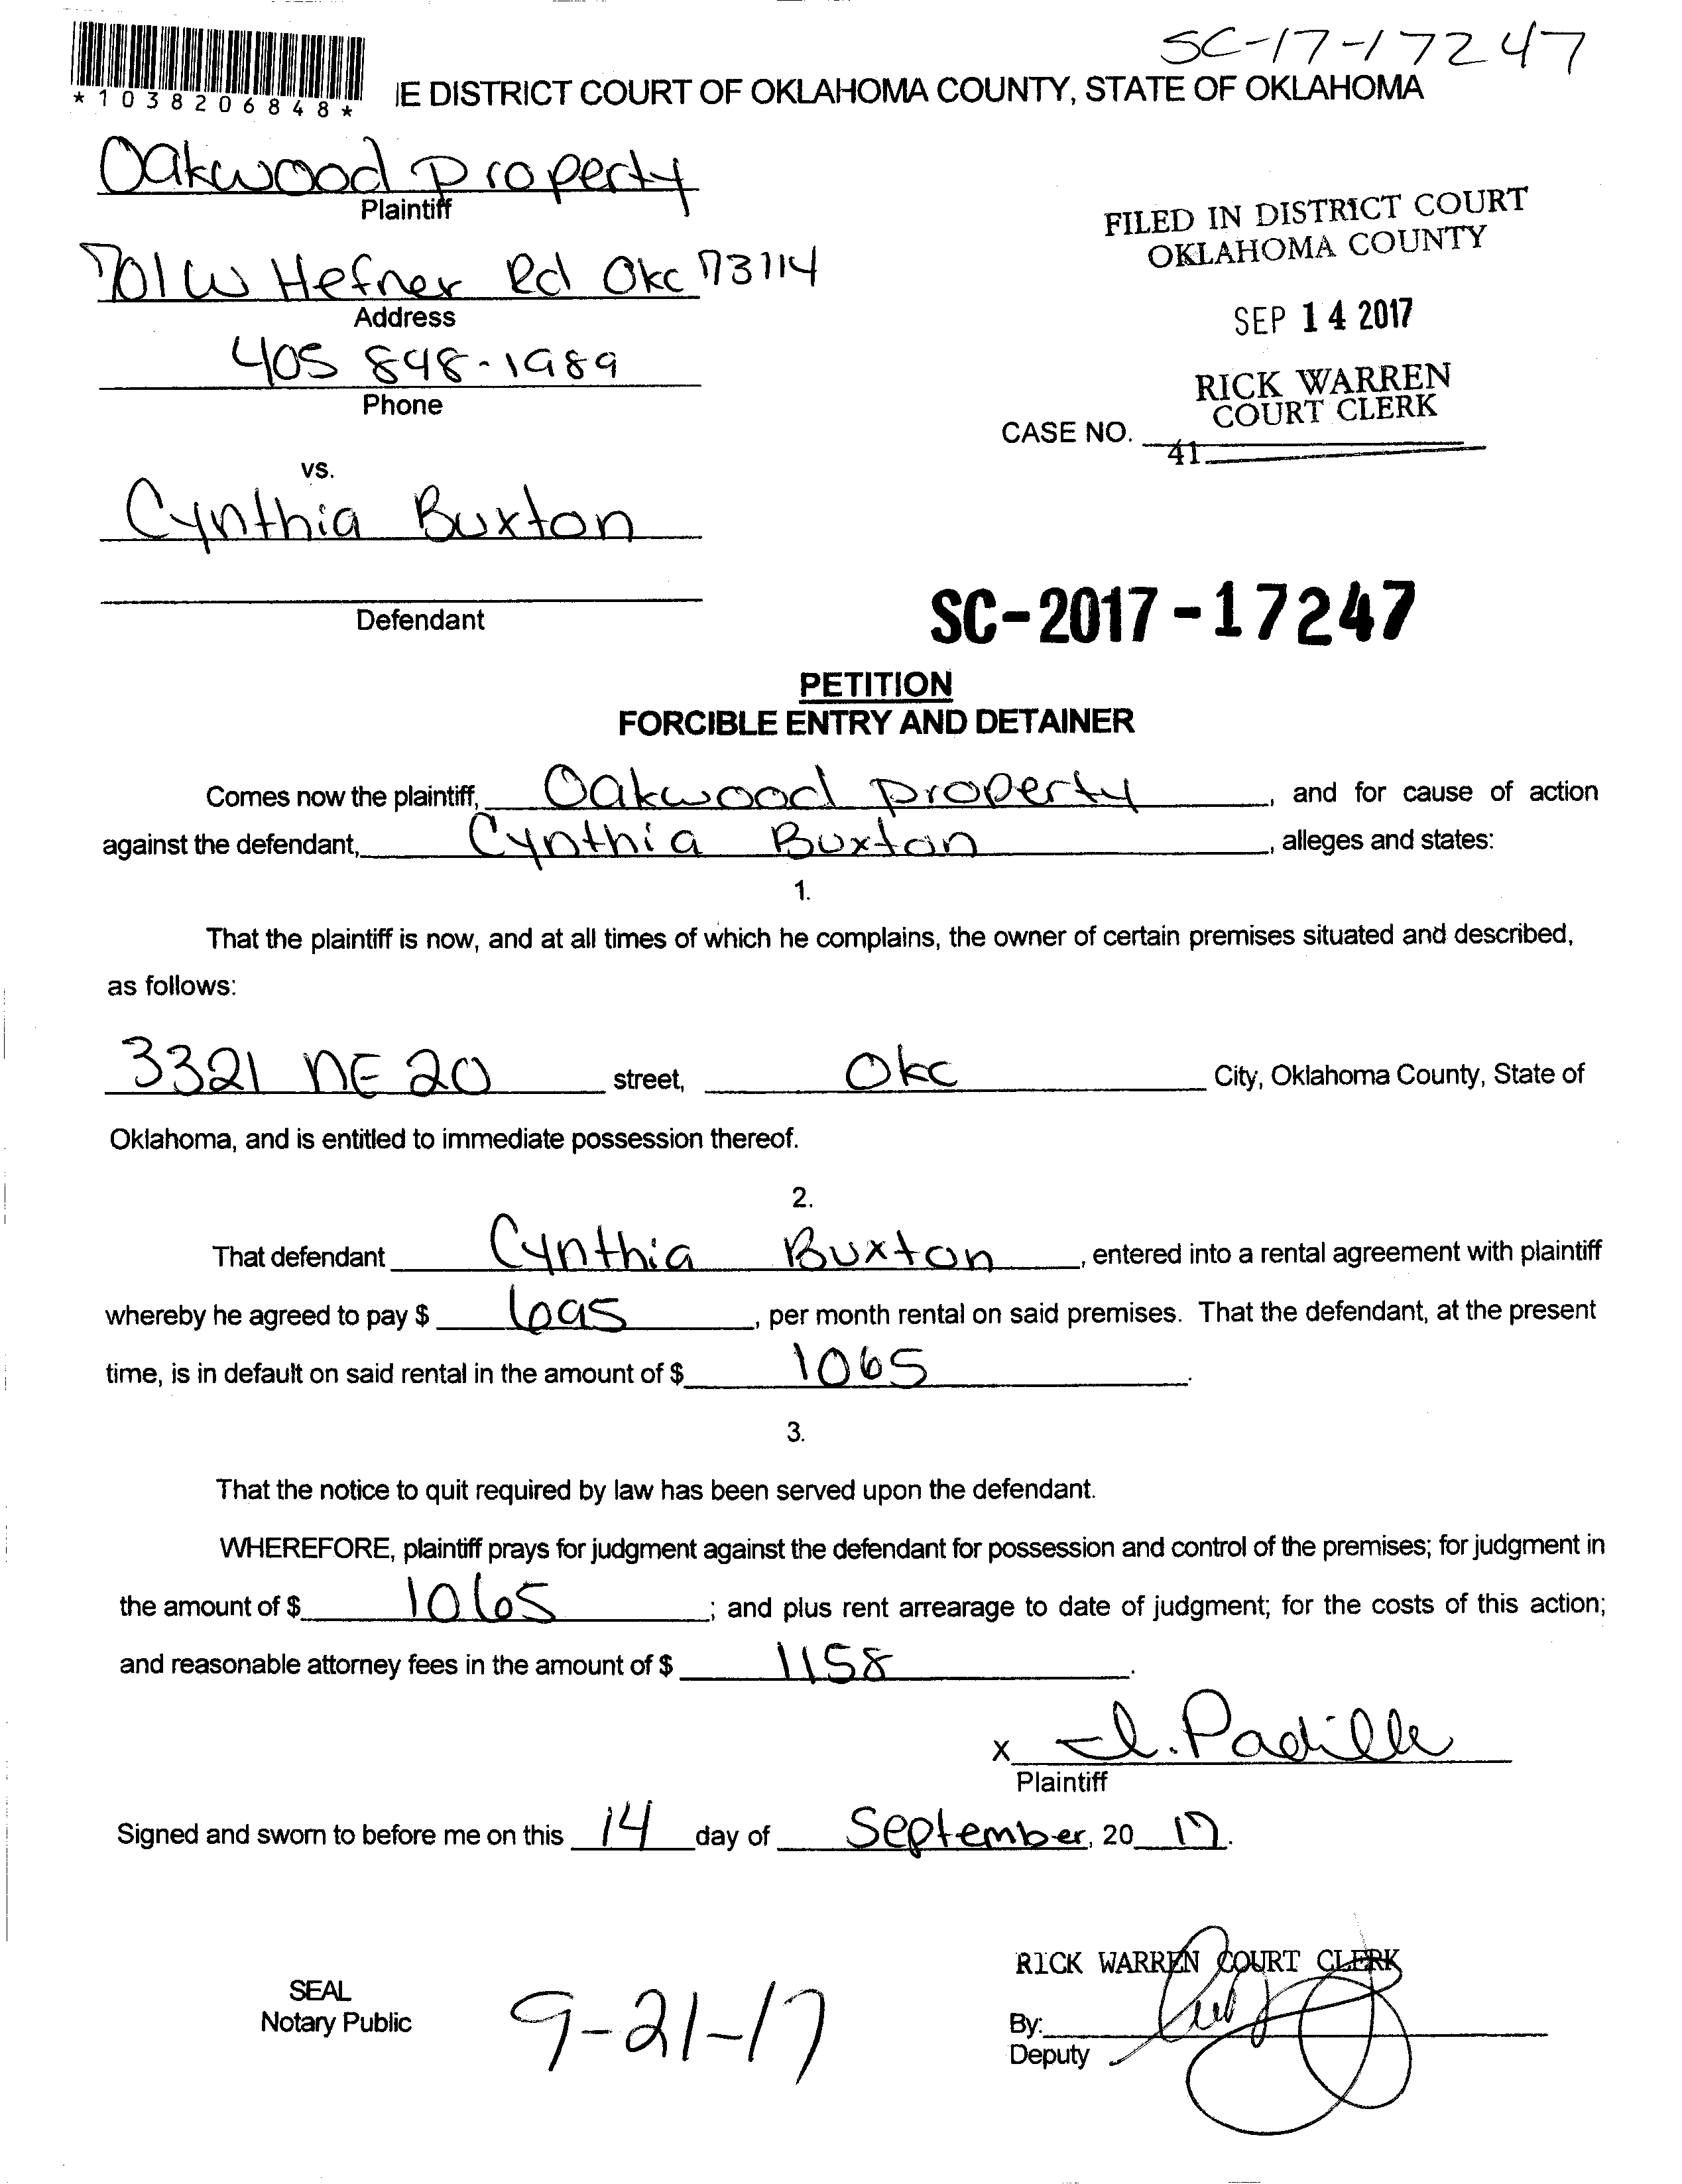 SC-17-17247
*1038206848*
IE DISTRICT COURT OF OKLAHOMA COUNTY, STATE OF OKLAHOMA
Oakwood Property
Plaintiff
701 W Hefner Rd Okc 73114
Address
405 848-1989
Phone
FILED IN DISTRICT COURT
OKLAHOMA COUNTY
SEP 14 2017
RICK WARREN
COURT CLERK
CASE NO.
41
vs.
Cynthia Buxton
Defendant
SC-2017-17247
PETITION
FORCIBLE ENTRY AND DETAINER
Comes now the plaintiff, Oakwood property, and for cause of action
against the defendant, Cynthia Buxton, alleges and states:
1.
That the plaintiff is now, and at all times of which he complains, the owner of certain premises situated and described,
as follows:
3321 NE 20 street, Okc City, Oklahoma County, State of
Oklahoma, and is entitled to immediate possession thereof.
2.
That defendant Cynthia Buxton, entered into a rental agreement with plaintiff
whereby he agreed to pay $ 695, per month rental on said premises. That the defendant, at the present
time, is in default on said rental in the amount of $ 1065.
3.
That the notice to quit required by law has been served upon the defendant.
WHEREFORE, plaintiff prays for judgment against the defendant for possession and control of the premises; for judgment in
the amount of $ 1065; and plus rent arrearage to date of judgment; for the costs of this action;
and reasonable attorney fees in the amount of $ 1158.
x I. Padilla
Plaintiff
Signed and sworn to before me on this 14 day of September, 2017.
SEAL
Notary Public
9-21-17
RICK WARREN COURT CLERK
By:
Deputy